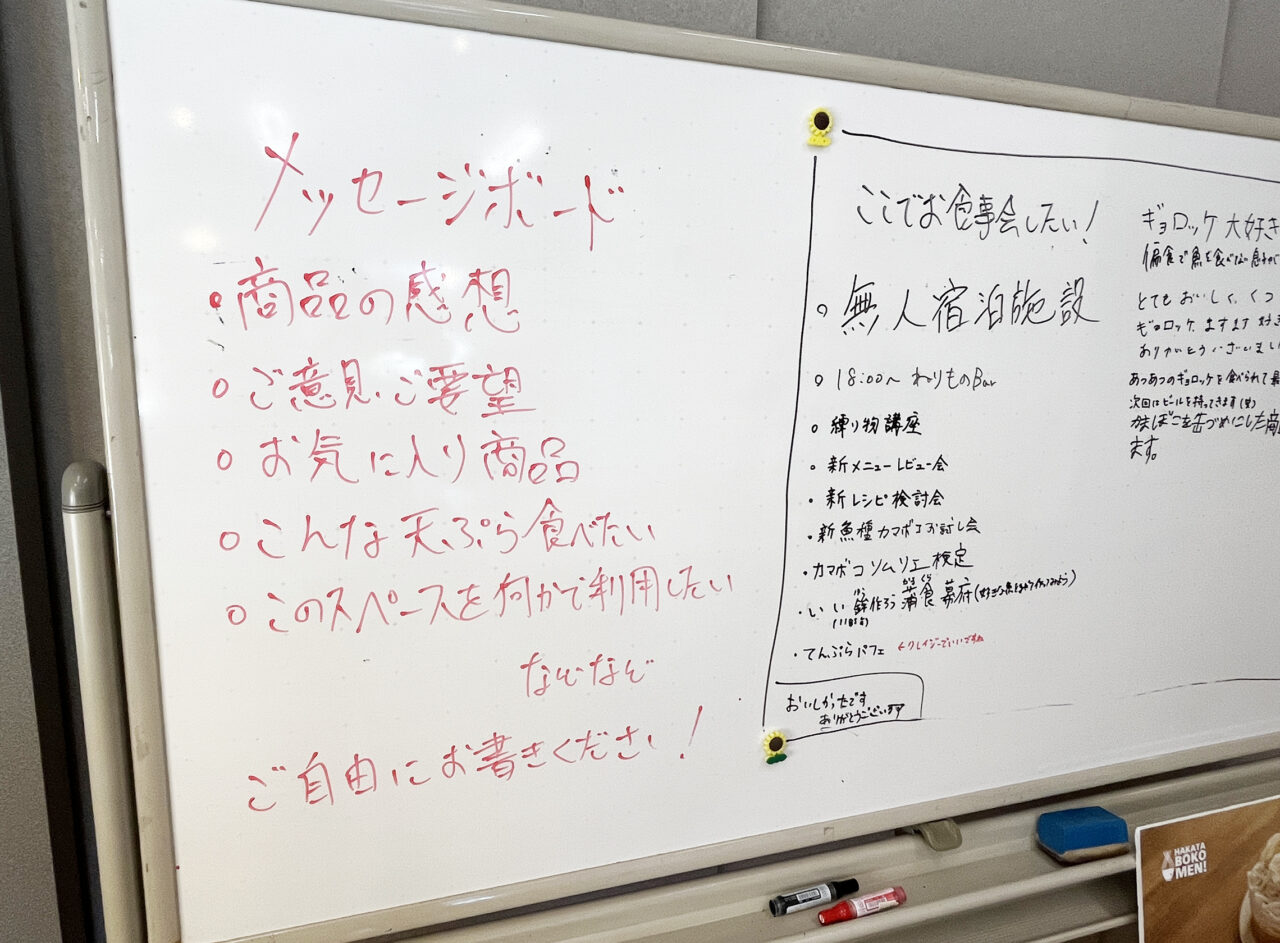 メッセージボード
・商品の感想
○ご意見・ご要望
○お気に入り商品
○こんな天ぷら食べたい
○このスペースを何かで利用したい
などなど
ご自由にお書きください!
ここでお食事会したい!
○無人宿泊施設
○18:00〜 ねりものBar
○練り物講座
・新メニューレビュー会
・新レシピ検討会
・新魚種カマボコお試し会
・カマボコソムリエ検定
・いい 作ろう 蒲食幕府
・てんぷらパフェ ←クレイジーでいいですね
おいしかったです
ありがとうございます
ギョロッケ大好き
偏食で魚を食べない息子が
とてもおいしく、くつ
ギョロッケ、ますます好き
ありがとうございまし
あつあつのギョロッケを食べられて最
次回はビールを持ってきます(笑)
かまぼこを缶づめにした商
ます。
HAKATA
BOKO
MEN!